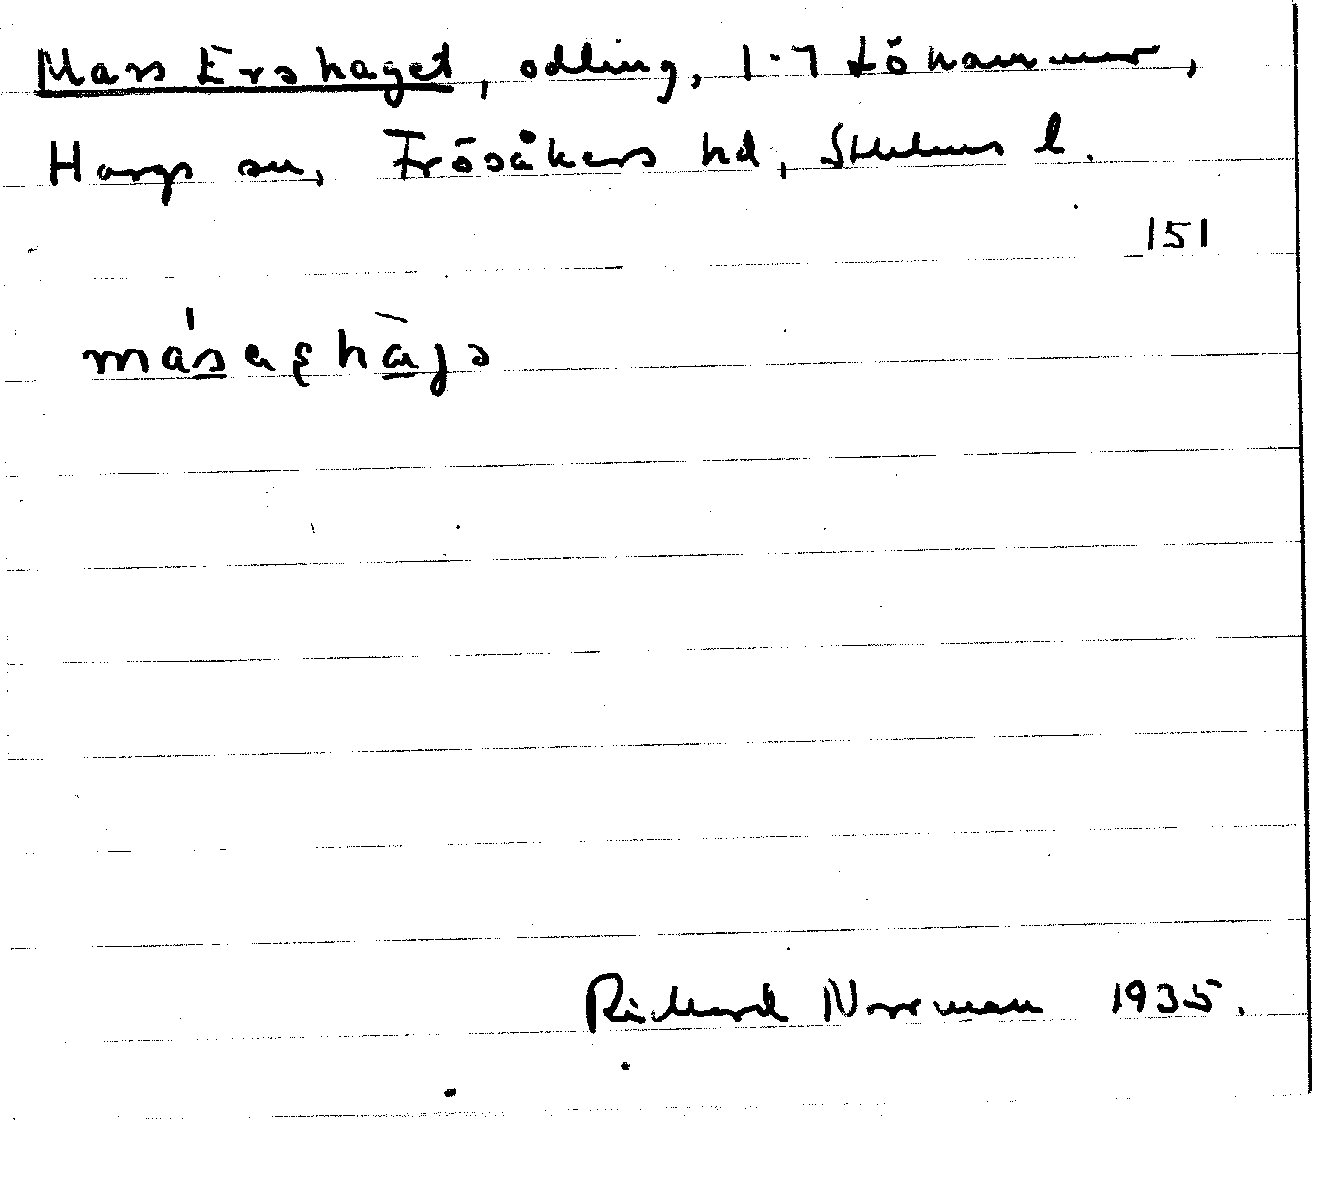 Mass Ershaget, odling, 1-7 Löhammar,
Hargs sn, Frösåkers hd, Sthlms l.
151
Richard Norrman 1935.